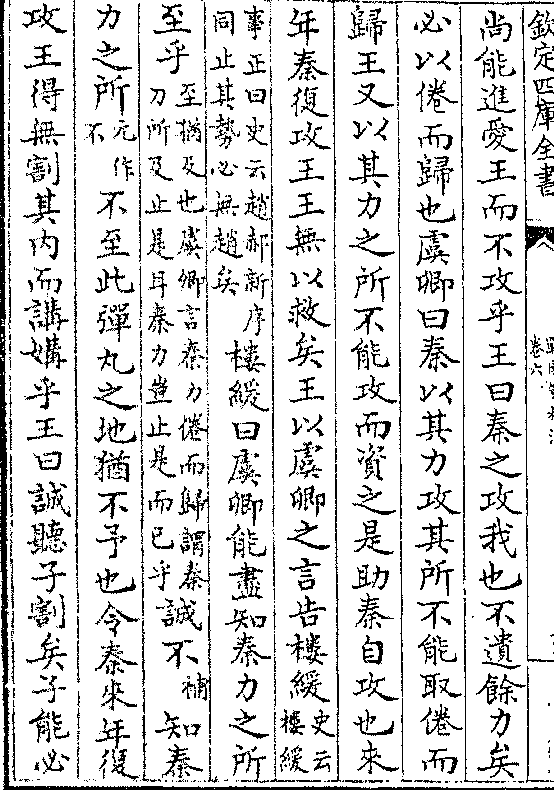 欽定四庫全書
卷六
尚能進愛王而不攻乎王曰秦之攻我也不遺餘力矣
必以倦而歸也虞卿曰秦以其力攻其所不能取倦而
歸王又以其力之所不能攻而資之是助秦自攻也來
年秦復攻王王無以救矣王以虞卿之言告樓緩史云樓緩
事正曰史云趙郝新序同止其勢必無趙矣樓緩曰虞卿能盡知秦力之所
至乎至猶及也虞卿言秦力倦而歸謂秦力所及止是耳秦力豈止是而已乎誠不補知秦
力之所元作不不至此彈丸之地猶不予也令秦來年復
攻王得無割其內而講媾乎王曰誠聽子割矣子能必